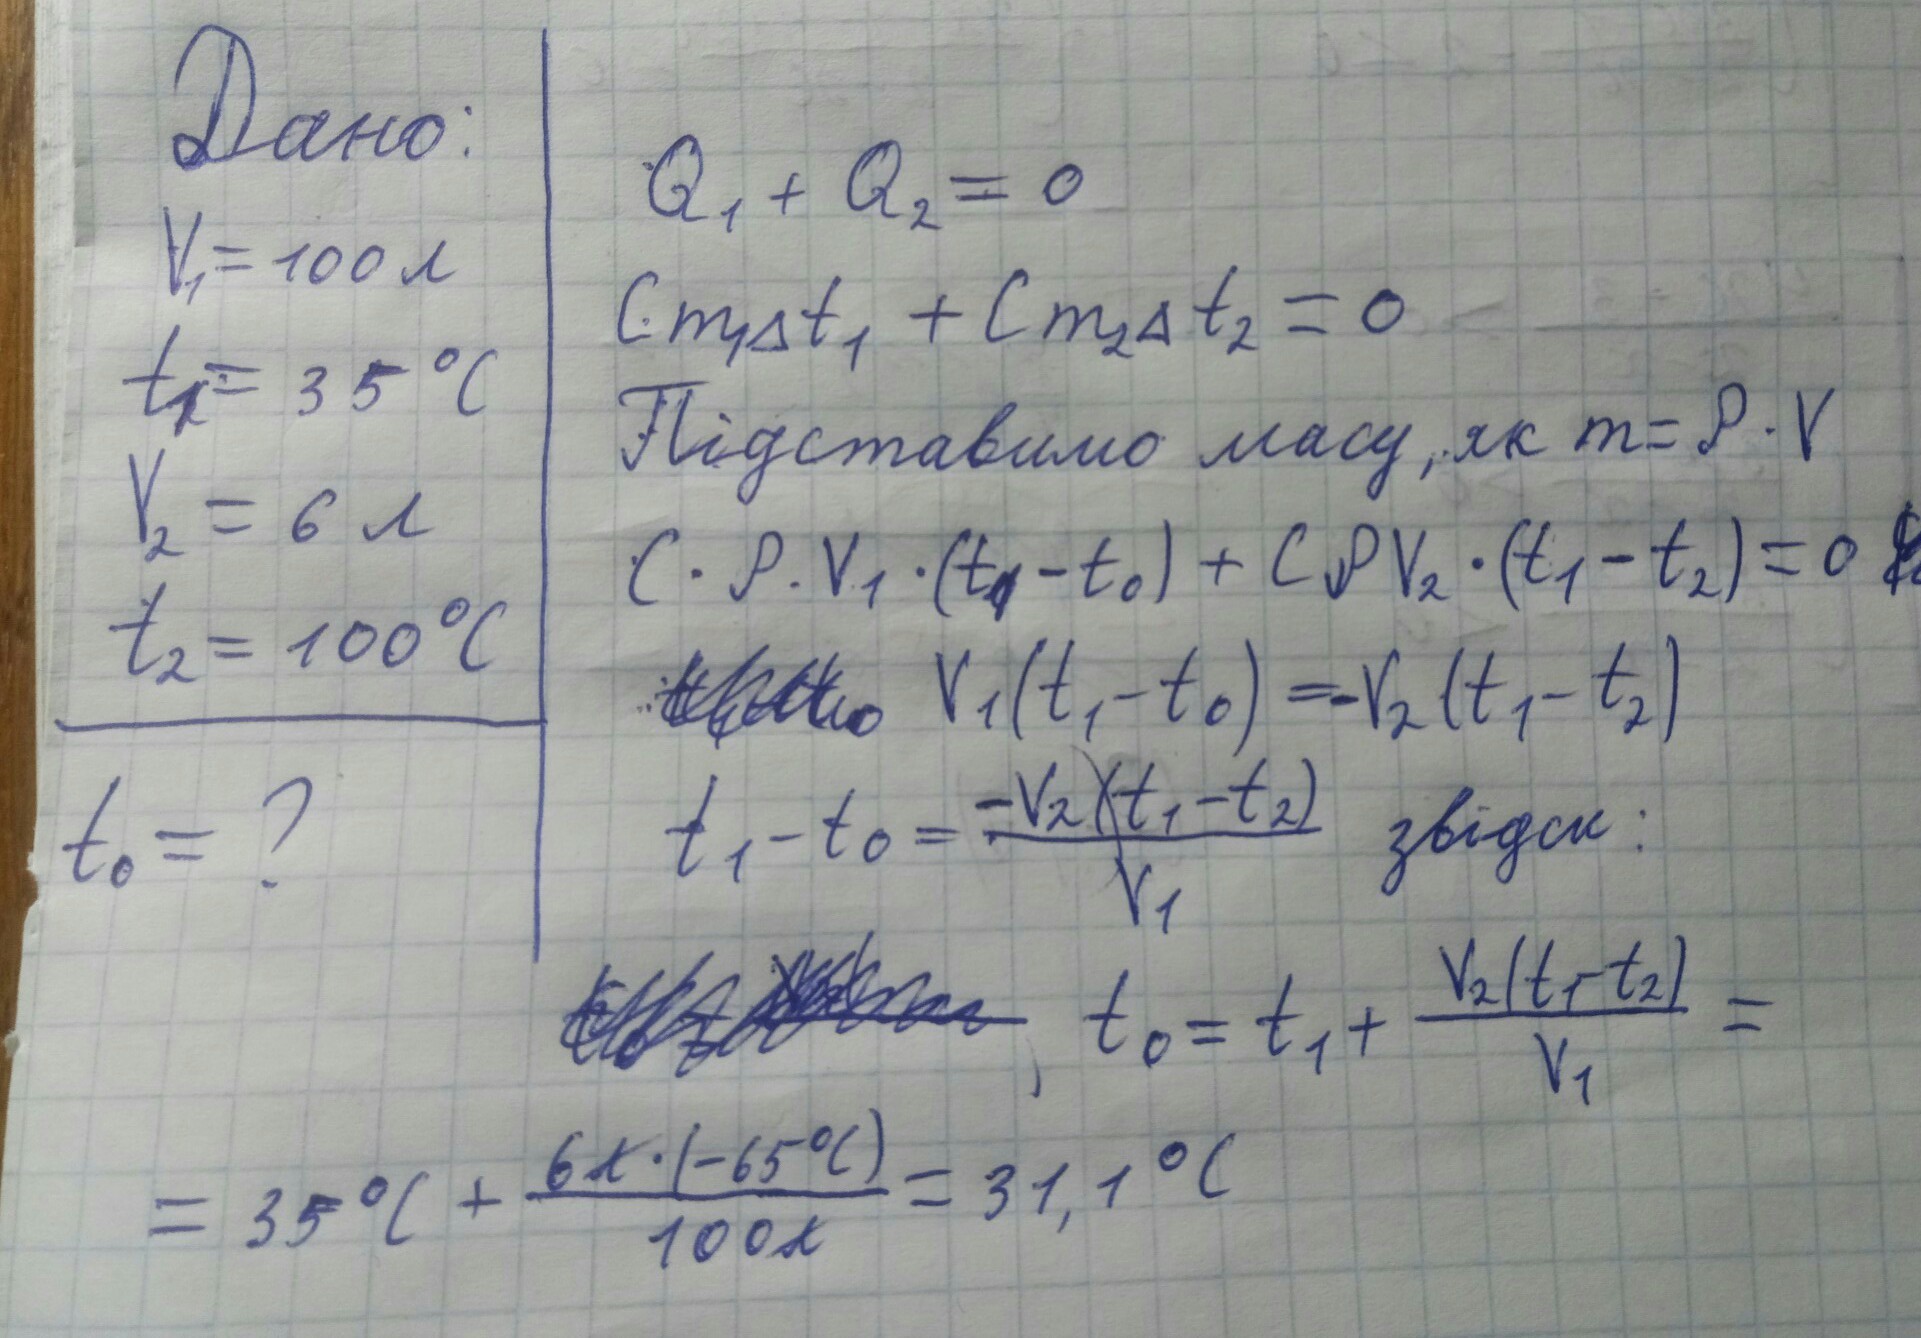 Дано:
V₁ = 100 л
t₁ = 35 °C
V₂ = 6 л
t₂ = 100 °C
t₀ = ?
Q₁ + Q₂ = 0
Cm₁Δt₁ + Cm₂Δt₂ = 0
Підставимо масу, як m = ρ · V
C · ρ · V₁ · (t₁ - t₀) + CρV₂ · (t₁ - t₂) = 0
V₁(t₁ - t₀) = -V₂(t₁ - t₂)
t₁ - t₀ = -V₂(t₁ - t₂) / V₁ звідси:
t₀ = t₁ + V₂(t₁ - t₂) / V₁ =
= 35 °C + 6 л · (-65 °C) / 100 л = 31,1 °C